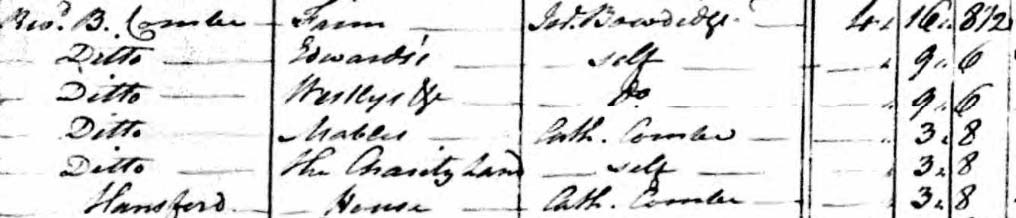 Revd. B. Combe Farm Jas. Bowdidge 4 16 8 1/2
Ditto Edwards's self 9 6
Ditto Westlys &c Do. 9 6
Ditto Mables Cath. Combe 3 8
Ditto The Charity Land self 3 8
Hansford House Cath. Combe 3 8